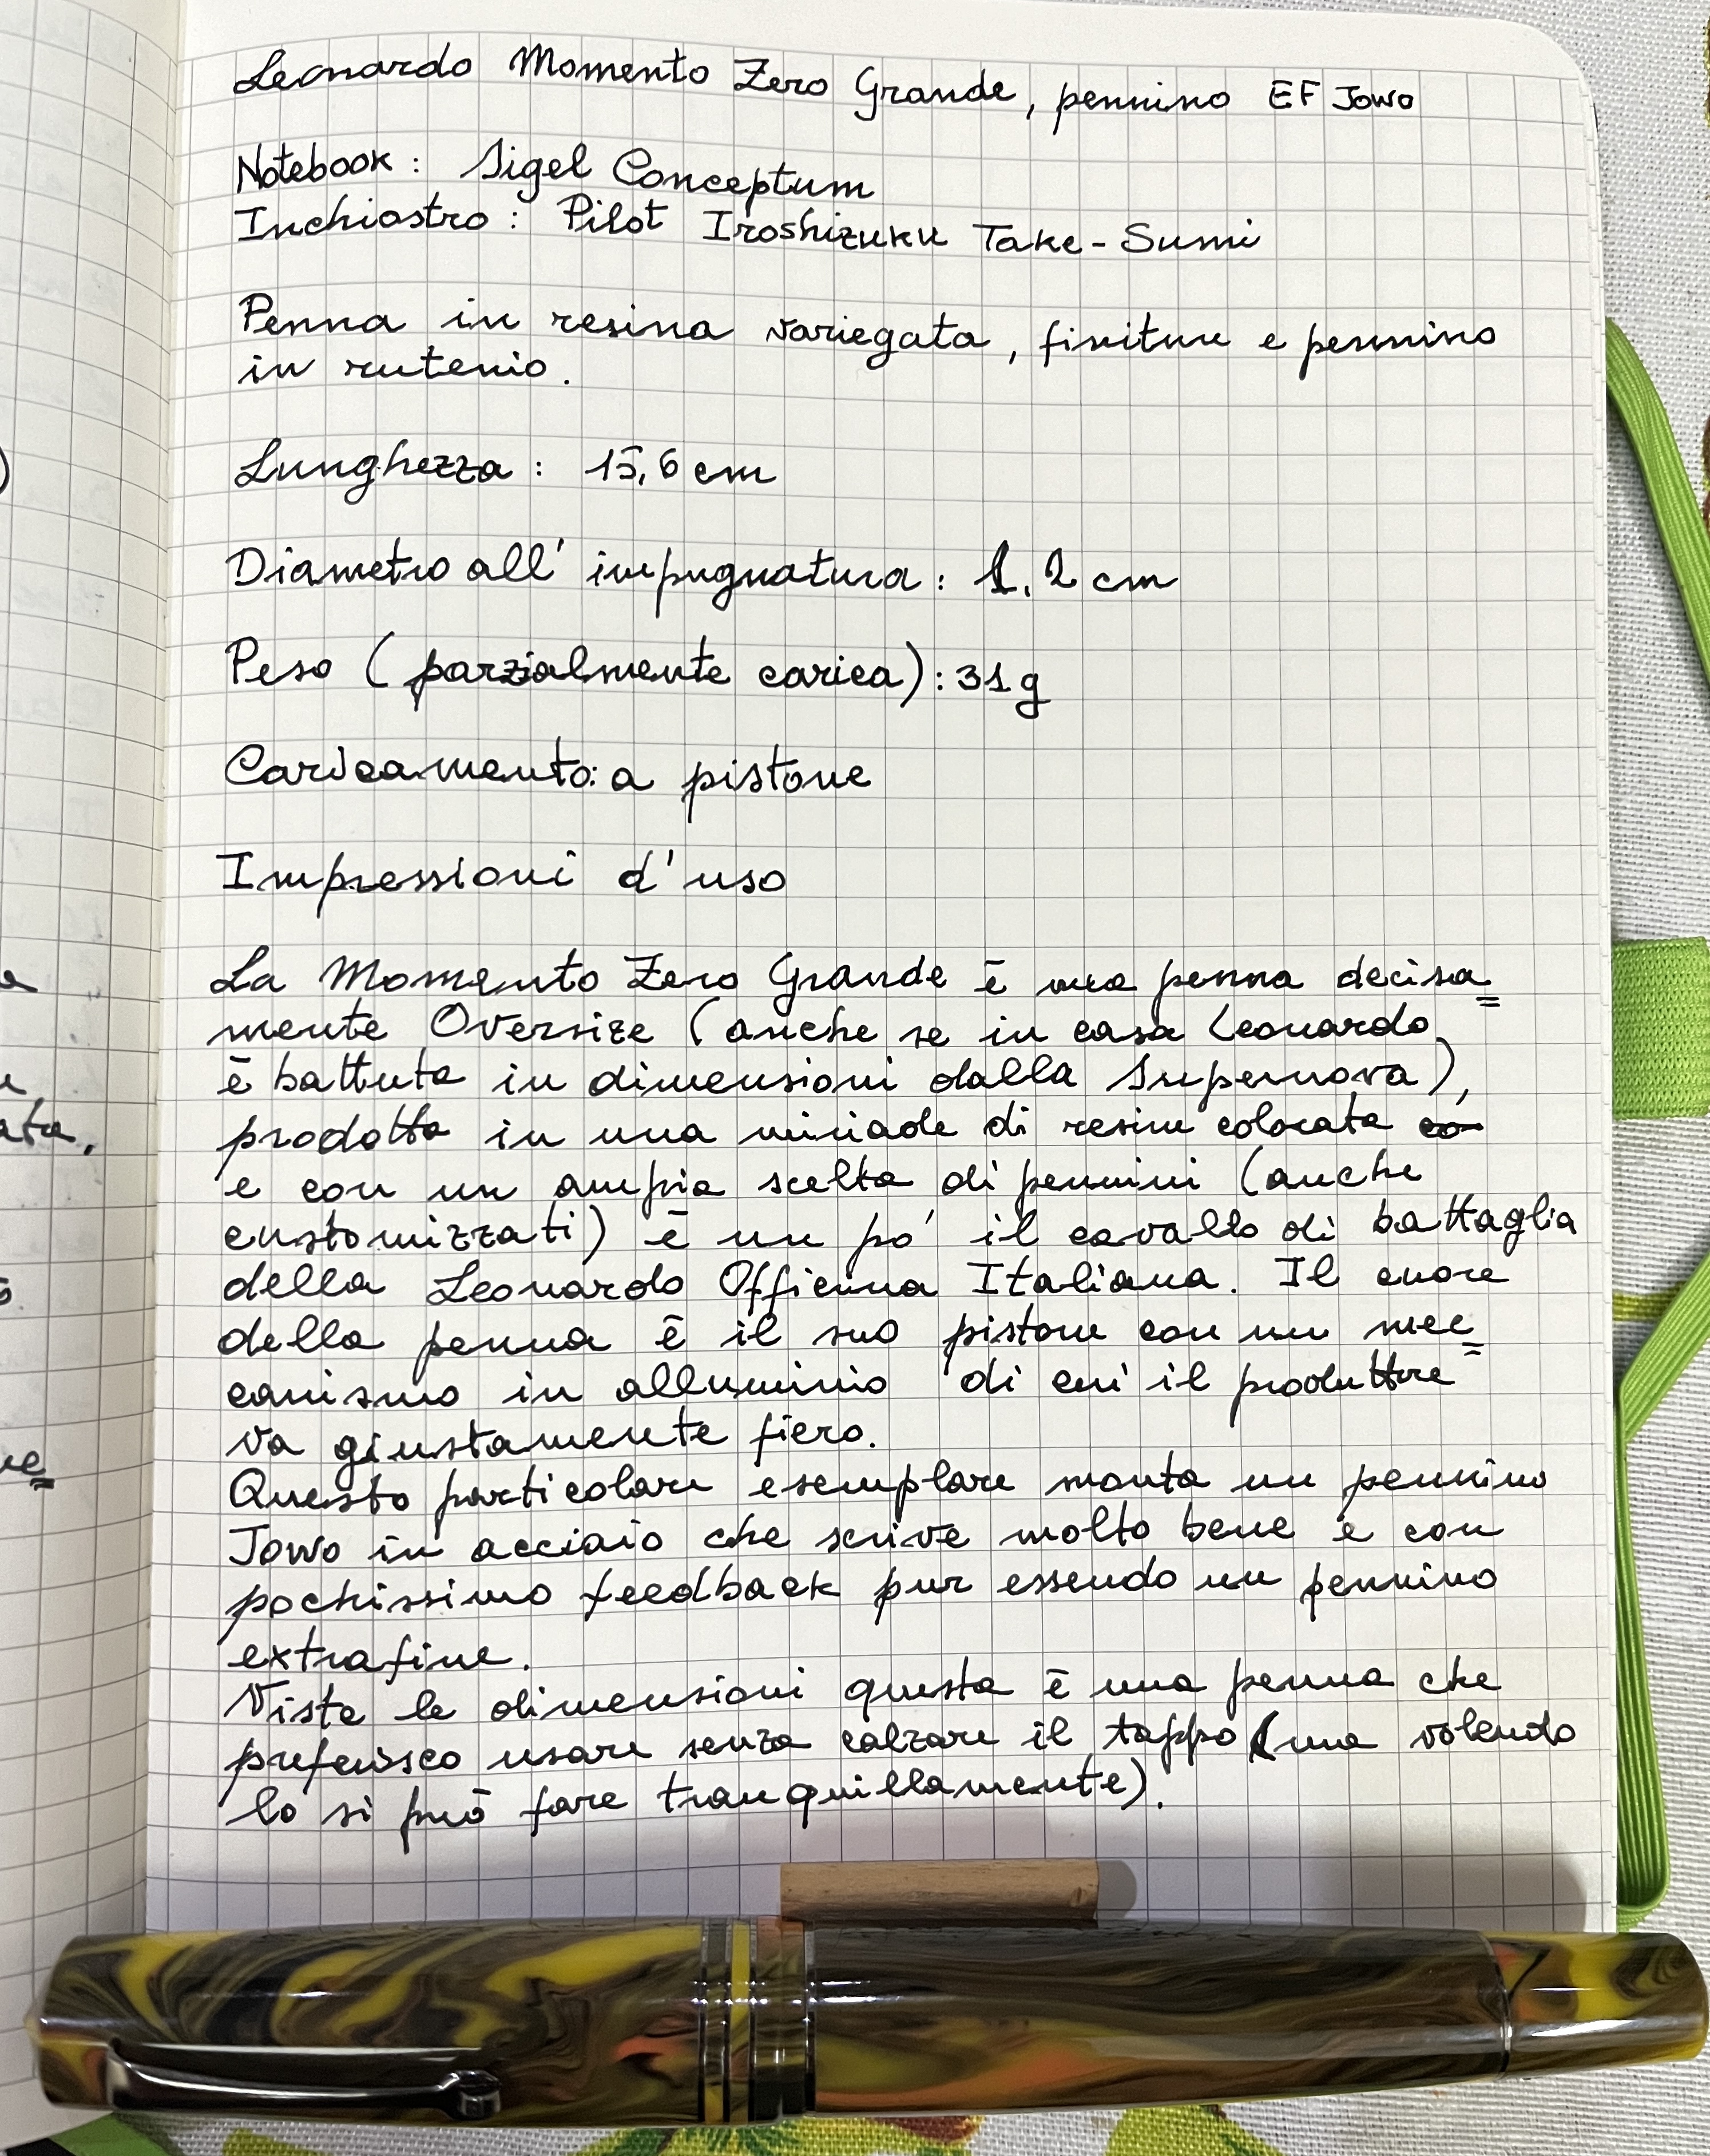 Leonardo Momento Zero Grande, pennino EF Jowo
Notebook: Sigel Conceptum
Inchiostro: Pilot Iroshizuku Take-Sumi
Penna in resina variegata, finiture e pennino
in rutenio.
Lunghezza: 15,6 cm
Diametro all'impugnatura: 1,2 cm
Peso (parzialmente carica): 31g
Caricamento: a pistone
Impressioni d'uso
La Momento Zero Grande è una penna decisa=
mente Oversize (anche se in casa Leonardo
è battuta in dimensioni dalla Supernova),
prodotta in una miriade di resine colorate
e con un ampia scelta di pennini (anche
customizzati) è un po' il cavallo di battaglia
della Leonardo Officina Italiana. Il cuore
della penna è il suo pistone con un mec=
canismo in alluminio di cui il produttore
va giustamente fiero.
Questo particolare esemplare monta un pennino
Jowo in acciaio che scrive molto bene e con
pochissimo feedback pur essendo un pennino
extrafine.
Viste le dimensioni questa è una penna che
preferisco usare senza calzare il tappo (ma volendo
lo si può fare tranquillamente).